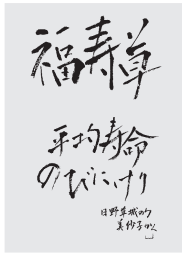 福寿草
平均寿命
のびにけり
日野草城の句
美紗子かく